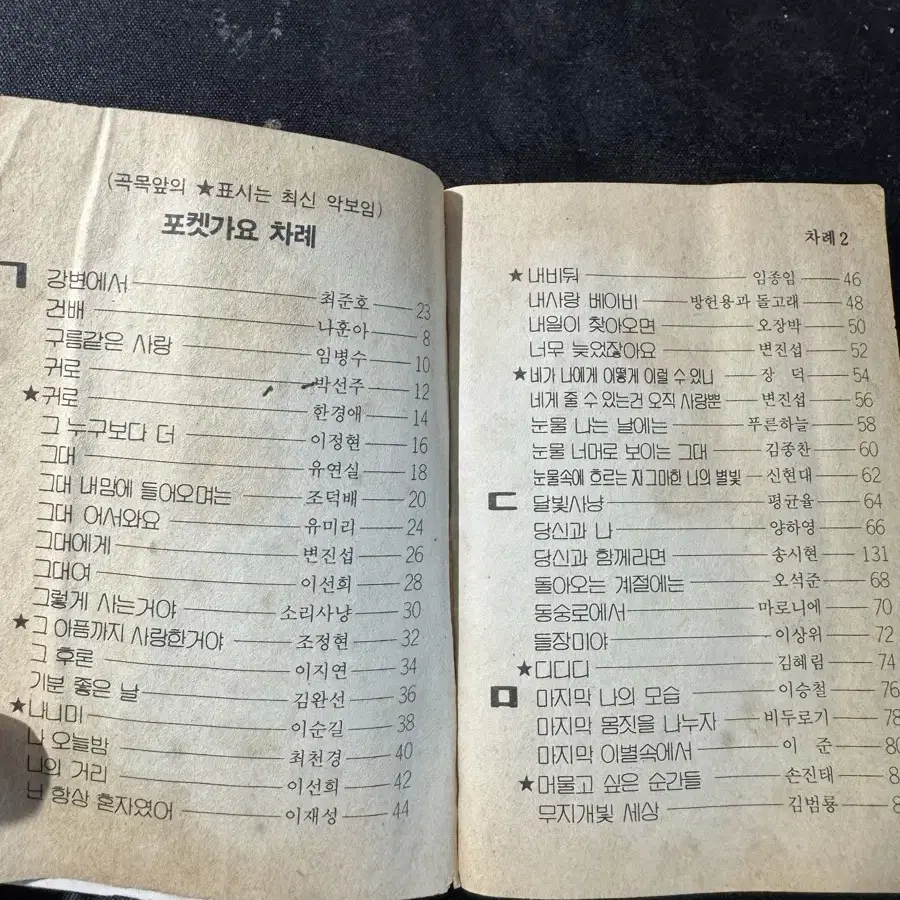 (곡목앞의 ★표시는 최신 악보임)
포켓가요 차례
ㄱ 강변에서 최준호 23
건배 나훈아 8
구름같은 사랑 임병수 10
귀로 박선주 12
★귀로 한경애 14
그 누구보다 더 이정현 16
그대 유연실 18
그대 내맘에 들어오며는 조덕배 20
그대 어서와요 유미리 24
그대에게 변진섭 26
그대여 이선희 28
그렇게 사는거야 소리사냥 30
★그 아픔까지 사랑한거야 조정현 32
그 후론 이지연 34
기분 좋은 날 김완선 36
★나니미 이순길 38
나 오늘밤 최천경 40
나의 거리 이선희 42
난 항상 혼자였어 이재성 44
차례 2
★내비둬 임종임 46
내사랑 베이비 방헌용과 돌고래 48
내일이 찾아오면 오장박 50
너무 늦었잖아요 변진섭 52
★네가 나에게 어떻게 이럴 수 있니 장 덕 54
네게 줄 수 있는건 오직 사랑뿐 변진섭 56
눈물 나는 날에는 푸른하늘 58
눈물 너머로 보이는 그대 김종찬 60
눈물속에 흐르는 자그마한 나의 별빛 신현대 62
ㄷ 달빛사냥 평균율 64
당신과 나 양하영 66
당신과 함께라면 송시현 131
돌아오는 계절에는 오석준 68
동숭로에서 마로니에 70
들장미야 이상위 72
★디디디 김혜림 74
ㅁ 마지막 나의 모습 이승철 76
마지막 몸짓을 나누자 비두로기 78
마지막 이별속에서 이 준
★머물고 싶은 순간들 손진태
무지개빛 세상 김범룡